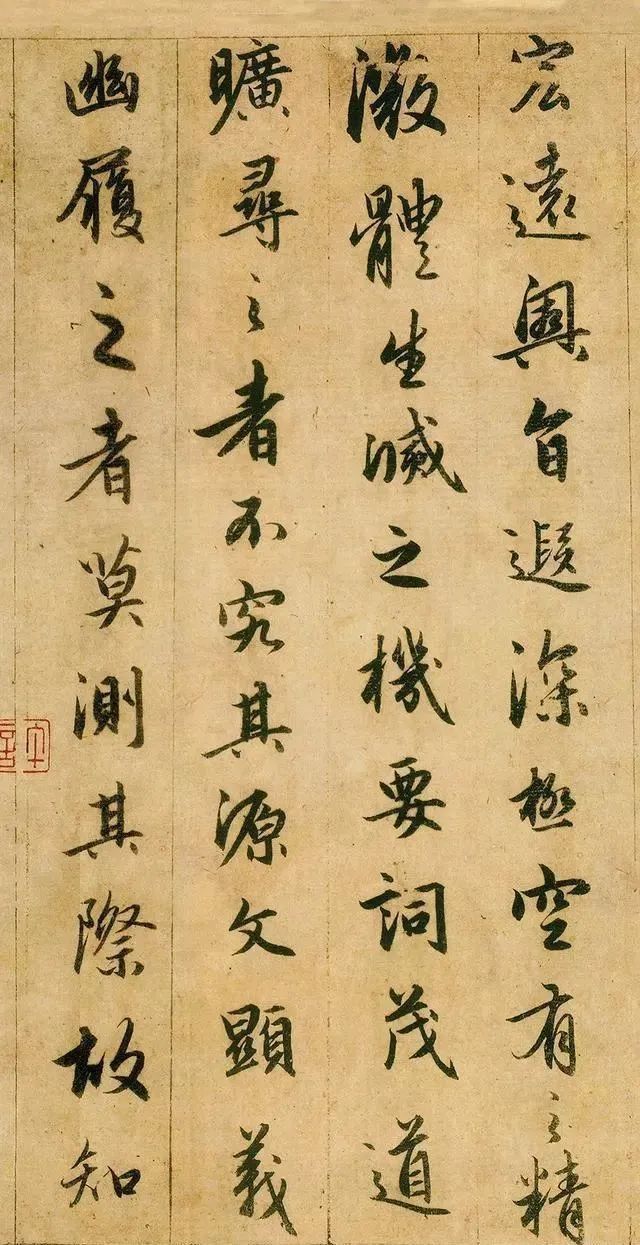 宏遠奧旨遐深極空有之精
微體生滅之機要詞茂道
曠尋之者不究其源文顯義
幽履之者莫測其際故知